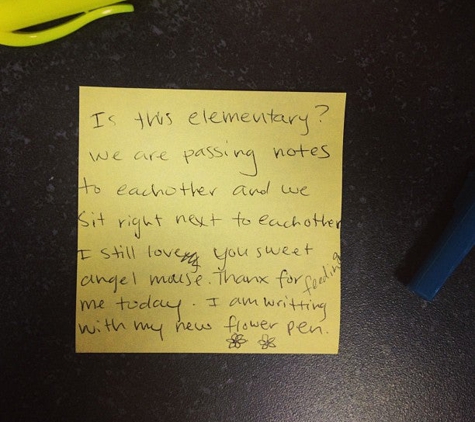 Is this elementary?
we are passing notes
to eachother and we
sit right next to eachother
I still love you sweet
angel mouse. Thanx for feeding
me today. I am writting
with my new flower pen.